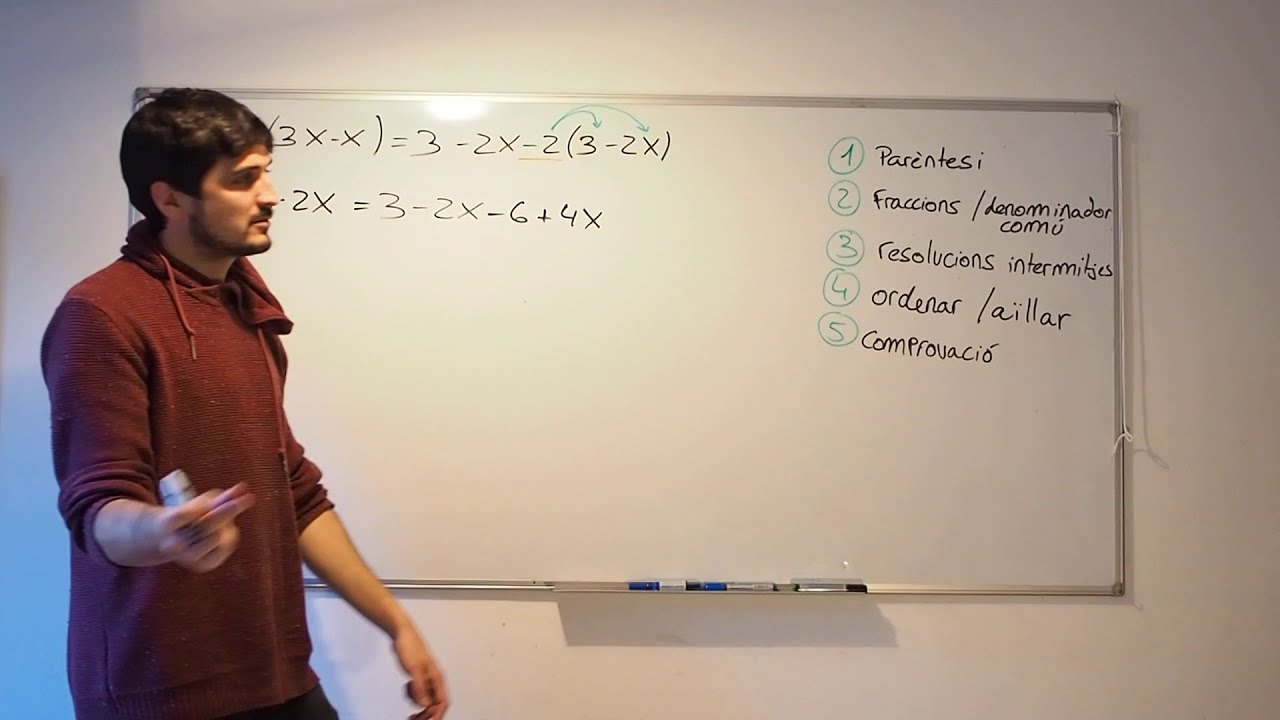 (3x-x)=3-2x-2(3-2x)
-2x =3-2x-6+4x
1 Parèntesi
2 fraccions /denominador
comú
3 resolucions intermitjes
4 ordenar /aïllar
5 comprovació